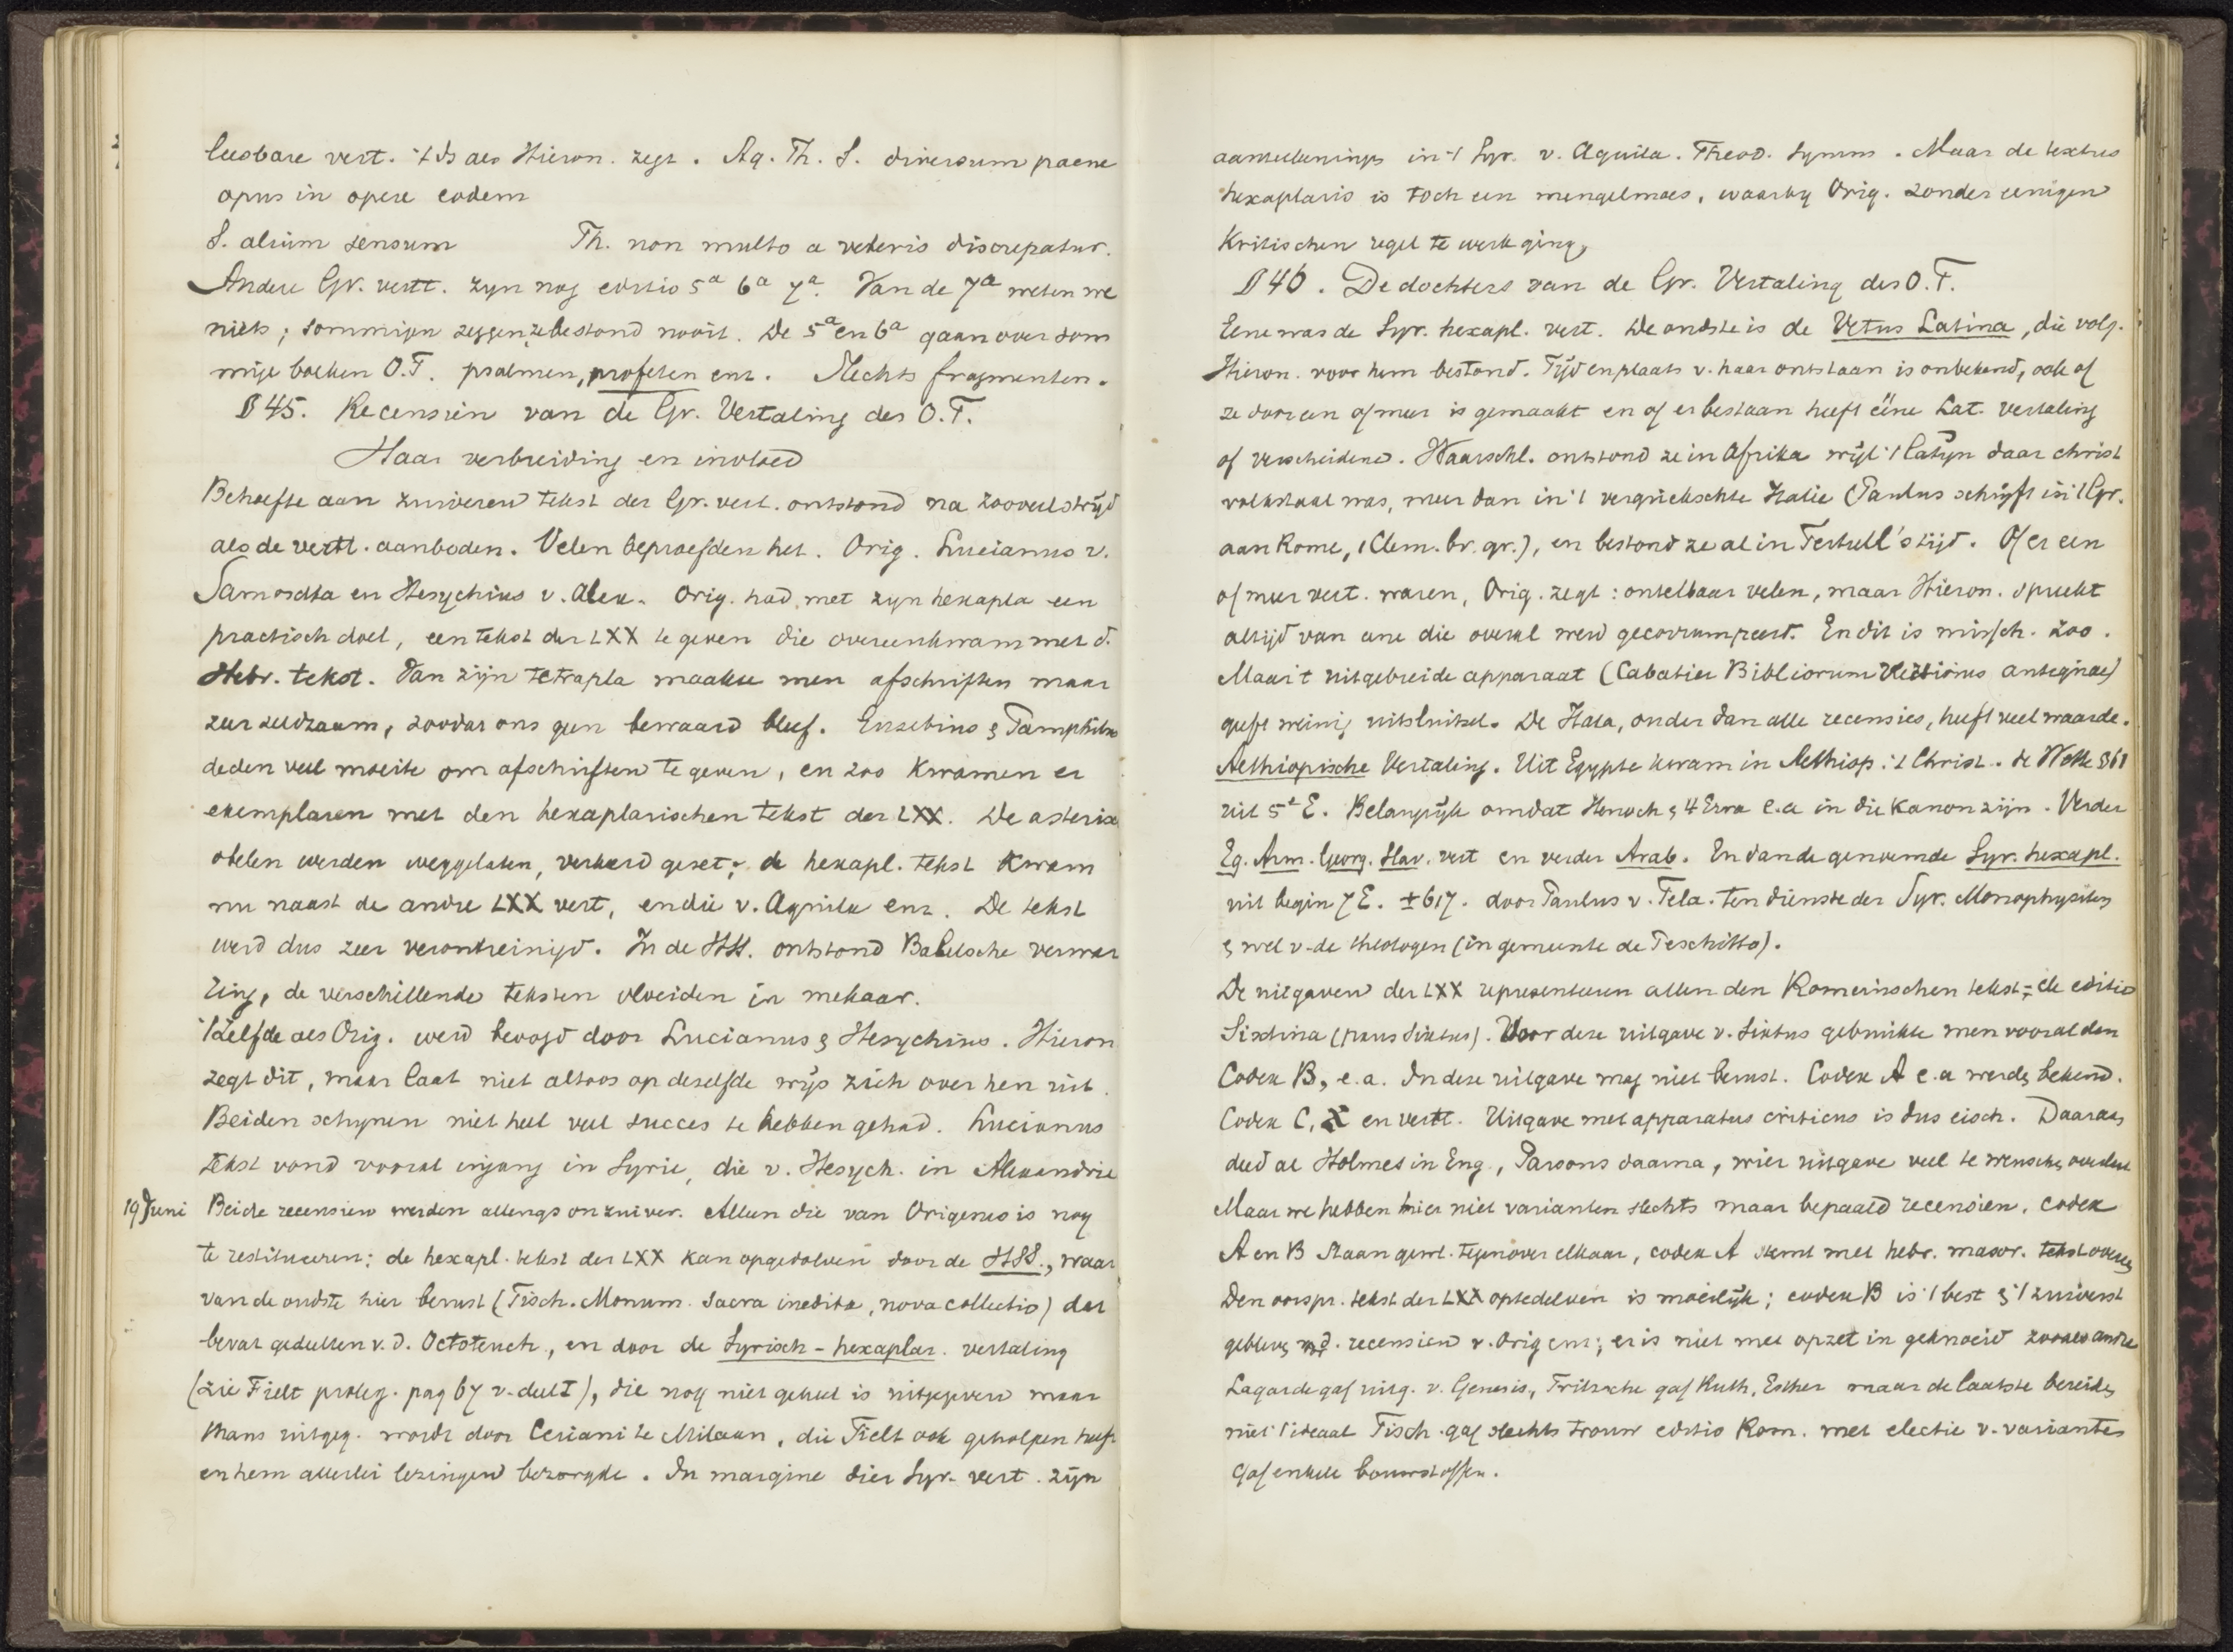 leesbare vert. 't Is als Hieron. zegt. Aq. Th. S. diversum paene
opus in opere eodem
S. alium sensum Th. non multo a veteris discrepatur.
Andere Gr. vertt. zyn nog editio 5a 6a 7a. Van de 7a weten we
niets; sommigen zeggen, ze bestond nooit. De 5a en 6a gaan over som
mige boeken O.T. psalmen, profeten enz. Slechts fragmenten.
§ 45. Recensien van de Gr. Vertaling des O.T.
Haar verbreiding en invloed
Behoefte aan zuiveren tekst der Gr. vert. ontstond na zooveel strijd
als de vertt. aanboden. Velen beproefden het. Orig. Lucianus v.
Samosata en Hesychius v. Alex. Orig. had met zyn hexapla een
practisch doel, een tekst der LXX te geven die overeenkwam met d.
Hebr. tekst. Van zijn tetrapla maakte men afschriften maar
zeer zeldzaam, zoodat ons geen bewaard bleef. Eusebius & Pamphilus
deden veel moeite om afschriften te geven, en zoo kwamen er
exemplaren met den hexaplarischen tekst der LXX. De asterisc
obelen werden weggelaten, verkeerd gezet; de hexapl. tekst kwam
nu naast de andre LXX vert, en die v. Aquila enz. De tekst
werd dus zeer verontreinigd. In de HSS. ontstond Babelsche verwar
ring, de verschillende teksten vloeiden in mekaar.
't Zelfde als Orig. werd beoogd door Lucianus & Hesychius. Hieron
zegt dit, maar laat niet altoos op dezelfde wijs zich over hen uit.
Beiden schynen niet heel veel succes te hebben gehad. Lucianus
tekst vond vooral ingang in Syrie, die v. Hesych. in Alexandrie
19 Juni Beide recensien werden allengs onzuiver. Alleen die van Origenes is nog
te restitueeren; de hexapl. tekst der LXX kan opgedolven door de HSS., waar
van de oudste hier berust (Tisch. Monum. sacra inedita, nova collectio) dat
bevat gedeelten v. d. Octoteuch, en door de Syrisch-hexaplar. vertaling
(zie Field proleg. pag 67 v. deel I), die nog niet geheel is uitgegeven maar
thans uitgeg. wordt door Ceriani te Milaan, die Field ook geholpen heeft
en hem allerlei lezingen bezorgde. In margine dier Syr. vert. zijn
aanteekeningen in 't Syr. v. Aquila. Theod. Symm. Maar de textus
hexaplaris is toch een mengelmoes, waarby Orig. zonder eenigen
kritischen regel te werk ging.
§ 46. De dochters van de Gr. Vertaling des O.T.
Eene was de Syr. hexapl. vert. De oudste is de Vetus Latina, die volg.
Hieron. voor hem bestond. Tijd en plaats v. haar ontstaan is onbekend, ook of
ze door een of meer is gemaakt en of er bestaan heeft ééne Lat. vertaling
of verscheidene. Waarschl. ontstond ze in Afrika wijl 't Latijn daar christ
volkstaal was, meer dan in 't vergriekschte Italie (Paulus schrijft in 't Gr.
aan Rome, 1 Clem. br. gr.), en bestond ze al in Tertull's tijd. Of er een
of meer vert. waren, Orig. zegt: ontelbaar velen, maar Hieron. spreekt
altijd van eene die overal werd gecorrumpeerd. En dit is missch. zoo.
Maar 't uitgebreide apparaat (Sabatier Bibliorum Versiones antiquae)
geeft weinig uitsluitsel. De Itala, onder dan alle recensies, heeft veel waarde.
Aethiopische Vertaling. Uit Egypte kwam in Aethiop. 't Christ. de Wette § 61
uit 5e E. Belangrijk omdat Henoch & 4 Ezra e.a in die kanon zijn. Verder
Eg. Arm. Georg. Slav. vert en verder Arab. En dan de genoemde Syr. hexapl.
uit begin 7 E. ± 617. door Paulus v. Tela. ten dienste der Syr. Monophysiten
& wel v. de theologen (in gemeente de Peschitto).
De uitgaven der LXX representeeren allen den Romeinschen tekst; de editio
Sixtina (paus Sixtus). Voor deze uitgave v. Sixtus gebruikte men vooral den
Codex B, e.a. In deze uitgave mag niet berust. Codex A e.a werden bekend.
Codex C, א en vertt. Uitgave met apparatus criticus is dus eisch. Daaraan
deed al Holmes in Eng., Parsons daarna, wier uitgave veel te wenschen overlaat
Maar we hebben hier niet varianten slechts maar bepaald recensien. codex
A en B staan gewl. tegenover elkaar, codex A stemt met hebr. masor. tekst overeen
Den oorspr. tekst der LXX optedelven is moeilijk; codex B is 't best & 't zuiverst
gebleven v. d. recensien v. Orig enz; er is niet met opzet in geknoeid zooals andre
Lagarde gaf uitg. v. Genesis, Fritzsche gaf Ruth, Esther maar de laatste bereikte
niet 't ideaal Tisch. gaf slechts trouw editio Rom. met electie v. varianten
gaf enkele bouwstoffen.